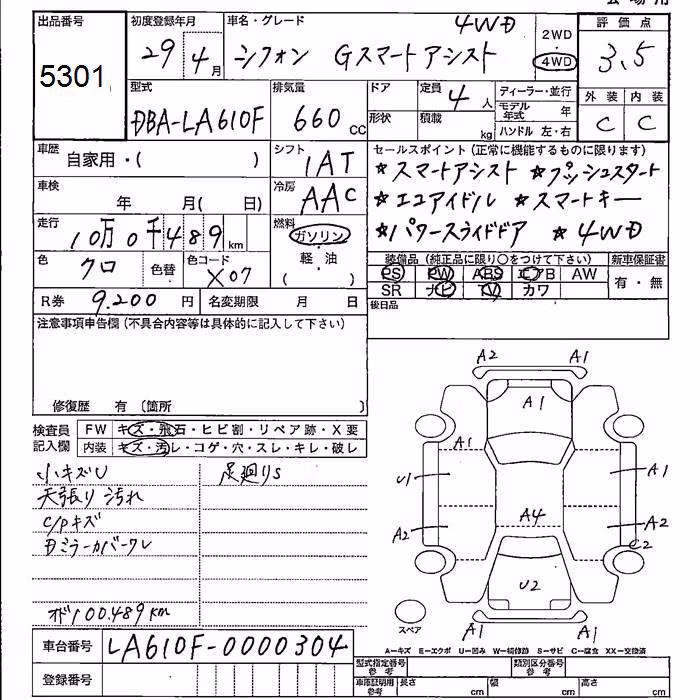 会場用
出品番号 初度登録年月 車名・グレード 4WD 2WD 評価点
5301 29 4月 シフォン Gスマートアシスト 4WD 3.5
型式 排気量 ドア 定員 4人 ディーラー・並行 外装 内装
DBA-LA610F 660cc 形状 積載 kg モデル年式 年 C C
ハンドル 左・右
車歴 自家用・( ) シフト IAT セールスポイント(正常に機能するものに限ります)
★スマートアシスト ★プッシュスタート
車検 年 月( 日) 冷房 AAC ★エコアイドル ★スマートキー
走行 10万0千489km 燃料 ガソリン ★パワースライドドア ★4WD
色 クロ 色替 色コード X07 軽・油 ( )
装備品(純正品に限り○をつけて下さい) 新車保証書
PS PW ABS エアB AW 有・無
SR ナビ TV カワ
R券 9.200円 名変期限 月 日 後日品
注意事項申告欄(不具合内容等は具体的に記入して下さい)
修復歴 有 〔箇所 〕
検査員記入欄 FW キズ・飛石・ヒビ割・リペア跡・X要
内装 キズ・汚レ・コゲ・穴・スレ・キレ・破レ
小キズU 足廻りS
天張り汚れ
C/Pキズ
Dミラーカバーワレ
オド100.489km
A2 A1
A1
A1 A1
U1
A2 A4 A2
C2
U2
A1 A1
スペア
A－キズ E－エクボ U－凹み W－補修跡 S－サビ C－腐食 XX－交換済
車台番号 LA610F-0000304
型式指定番号 参考 類別区分番号 参考
登録番号 車庫証明用 参考 長さ cm 幅 cm 高さ cm